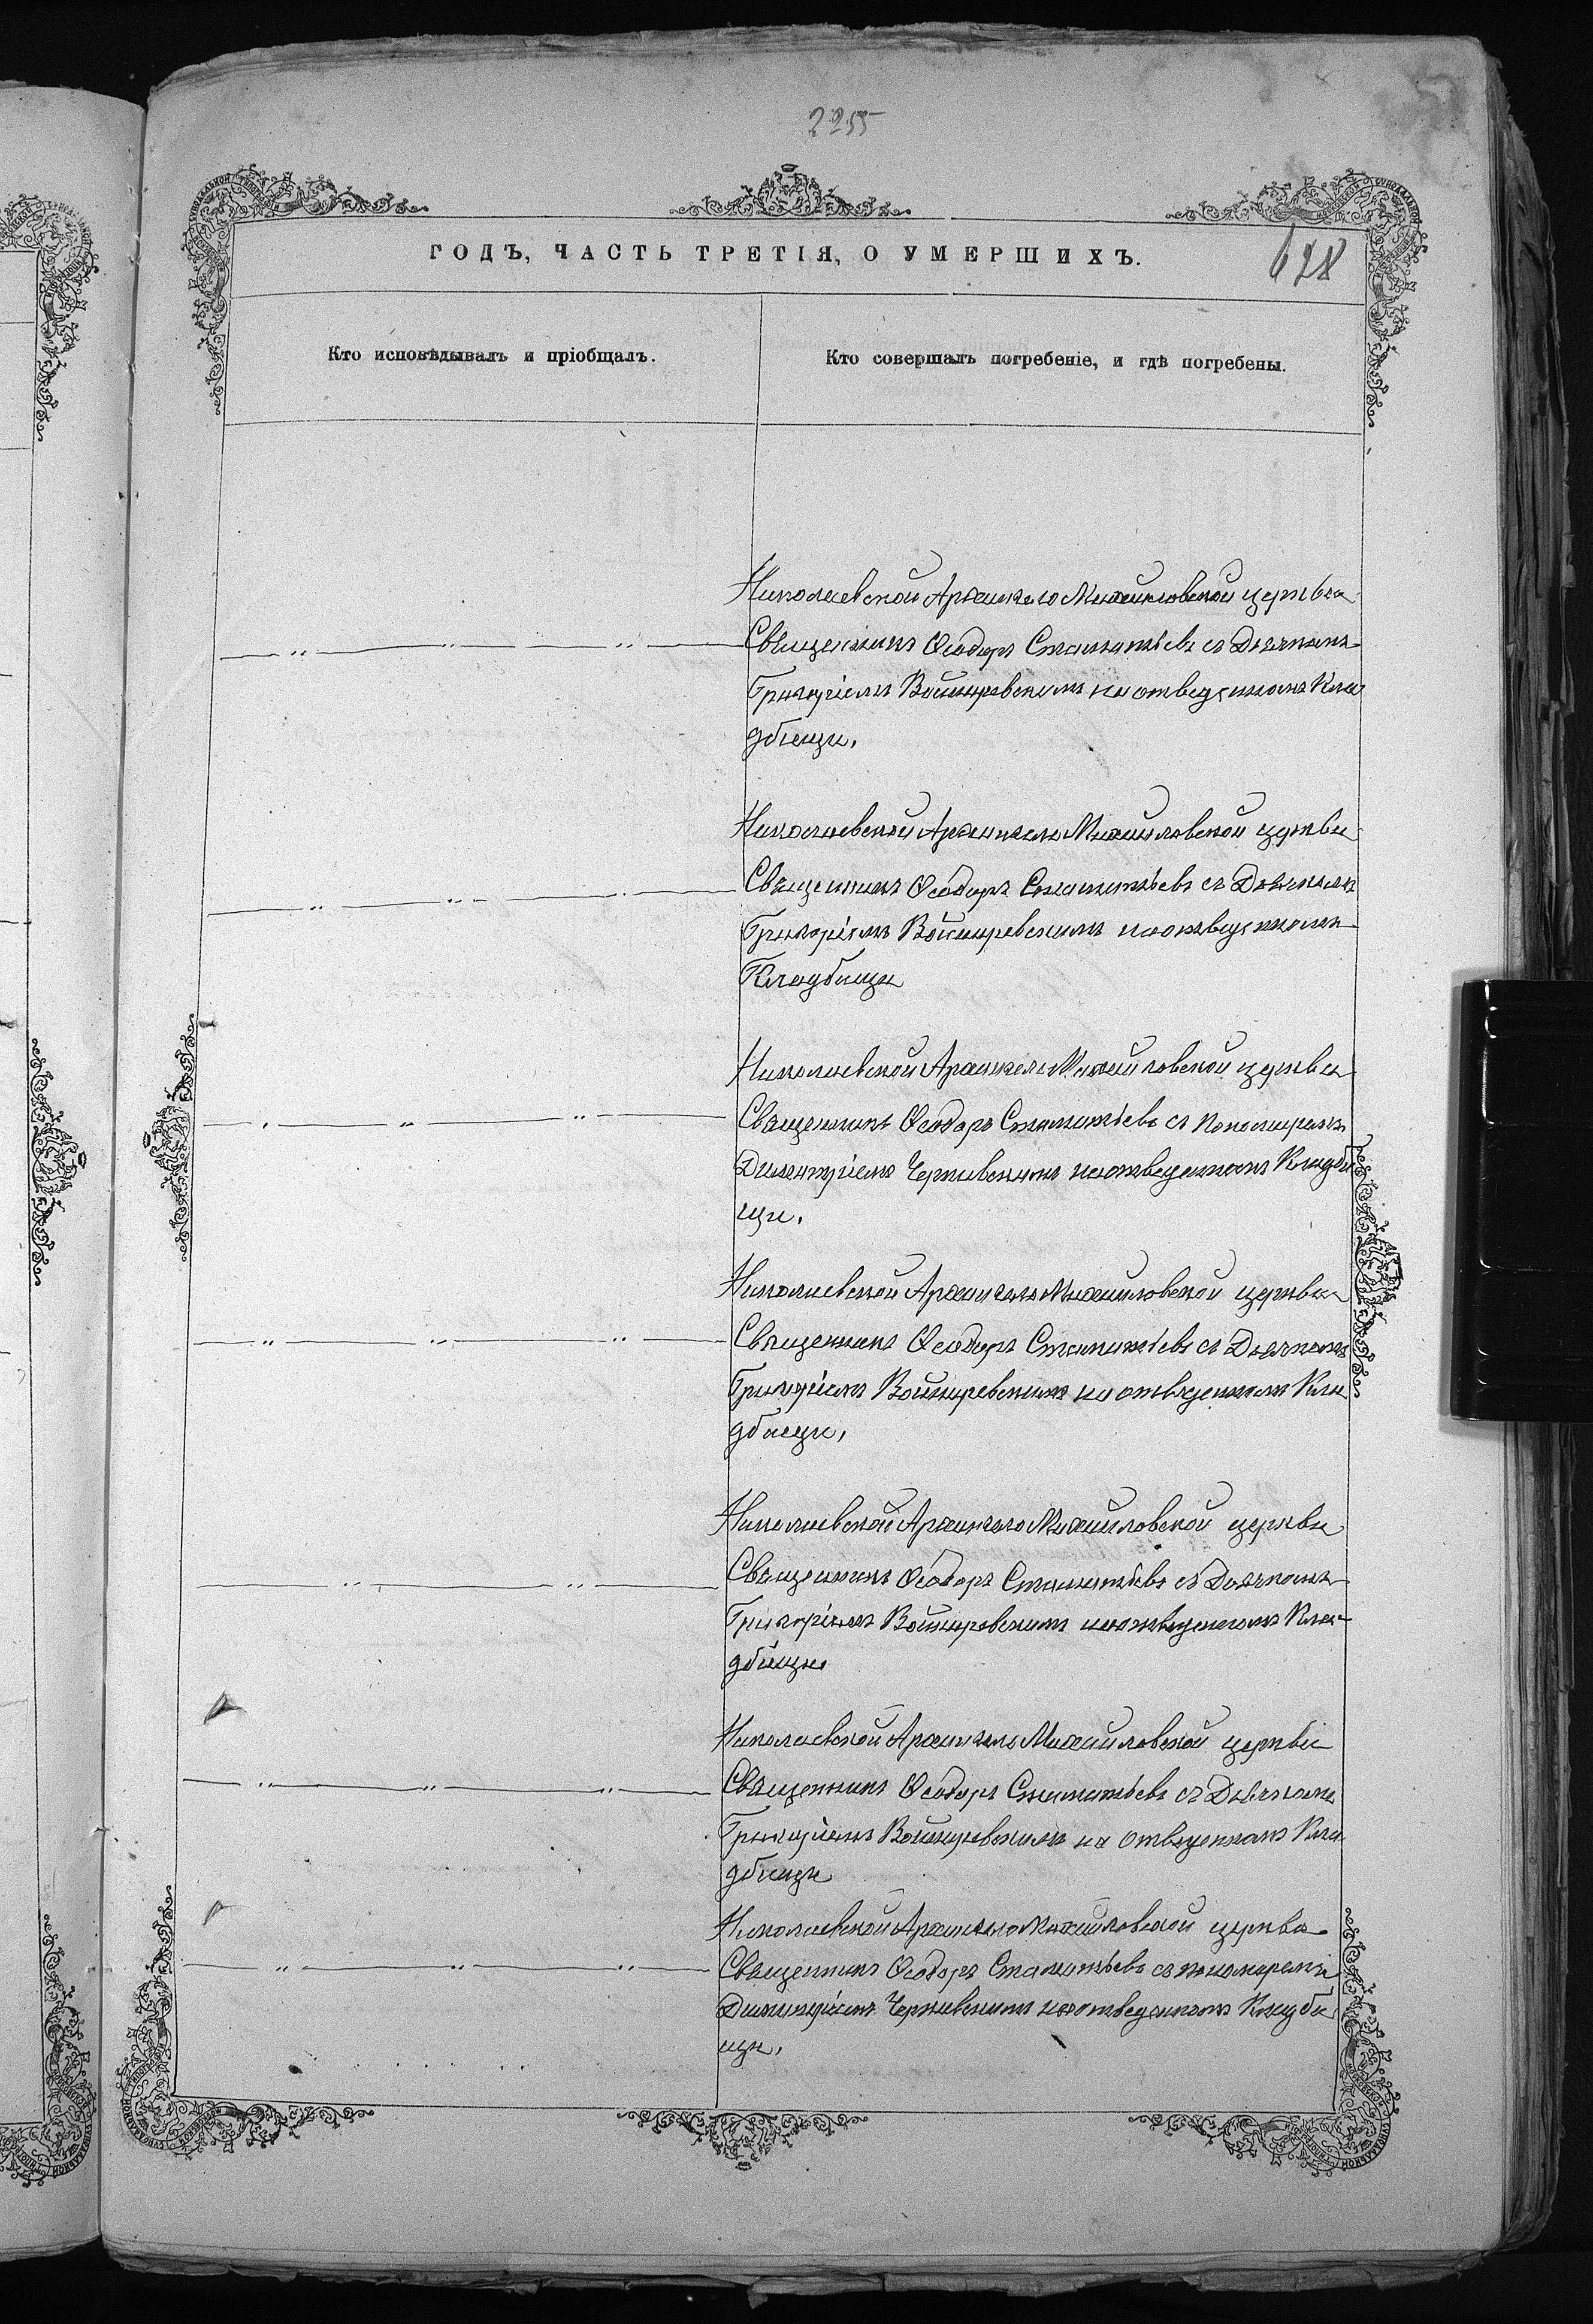 2255
ГОДЪ, ЧАСТЬ ТРЕТІЯ, О УМЕРШИХЪ.
628
Кто исповѣдывалъ и пріобщалъ.
Кто совершалъ погребеніе, и гдѣ погребены.
Николаевской Архангело Михайловской церкви
Священникъ Ѳеодоръ Стаматьевъ съ Дьячкомъ
Григоріемъ Войнировскимъ на отведенномъ Кла
дбищи.
Николаевской Архангело Михайловской церкви
Священникъ Ѳеодоръ Стаматьевъ съ Дьячкомъ
Григоріемъ Войнировскимъ на отведенномъ
Кладбищи
Николаевской Архангело Михайловской церкви
Священникъ Ѳеодоръ Стаматьевъ съ пономаремъ
Димитріемъ Чернявскимъ на отведенномъ Кладби
щи.
Николаевской Архангело Михайловской церкви
Священникъ Ѳеодоръ Стаматьевъ съ Дьячкомъ
Григоріемъ Войнировскимъ на отведенномъ Кла
дбищи,
Николаевской Архангело Михайловской церкви
Священникъ Ѳеодоръ Стаматьевъ съ Дьячкомъ
Григоріемъ Войнировскимъ на отведенномъ Кла-
дбищи
Николаевской Архангело Михайловской церкви
Священникъ Ѳеодоръ Стаматьевъ съ Дьячкомъ
Григоріемъ Войнировскимъ на отведенномъ Кла
дбищи
Николаевской Архангело Михайловской церкви
Священникъ Ѳеодоръ Стаматьевъ съ пономаремъ
Димитріемъ Чернявскимъ на отведенномъ Кладби
щи.